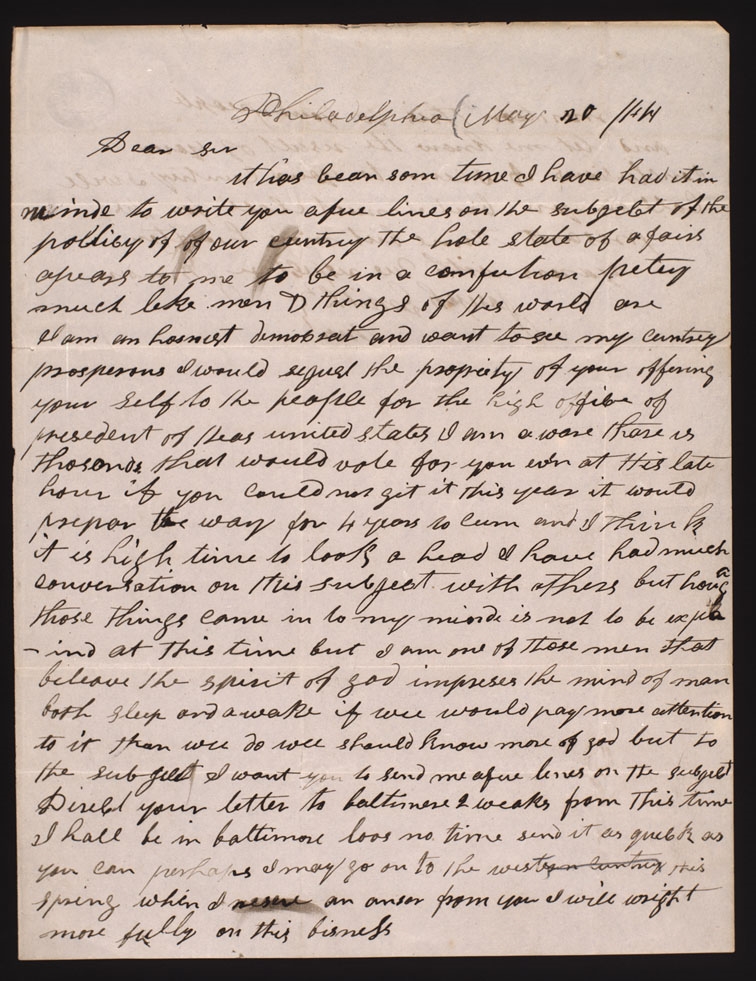 Philadelphia (May 20 /44
Dear Sir
it has bean som time I have had it in
minde to write you a fue lines on the subgebt of the
pollicy of of our cuntry the hole state of afairs
apears to me to be in a confution pretey
much like men & things of this world are
I am an honnest demobrat and want to see my cuntrey
prosperous I would sejest the propriety of your offering
your Self to the peaple for the high offibe of
president of theas united states I am a ware thare is
thosands that would vote for you evin at this late
hour if you could not git it this year it would
prepar the way for 4 years to cum and I think
it is high time to look a head I have had much
conversation on this subject with others but how a
those things came in to my minde is not to be
-ind at this time but I am one of those men that
beleave the spirit of god impreses the mind of man
both sleep and a wake if wee would pay more attention
to it than wee do wee should know more of god but to
the subgebt I want you to send me a fue lines on the subgebt
Direbt your letter to baltimore 2 weaks from this time
I hall be in baltimore loos no time send it as quebk as
you can perhaps I may go on to the western cuntrey this
spring when I reseve an anser from you I will wright
more fully on this bisness